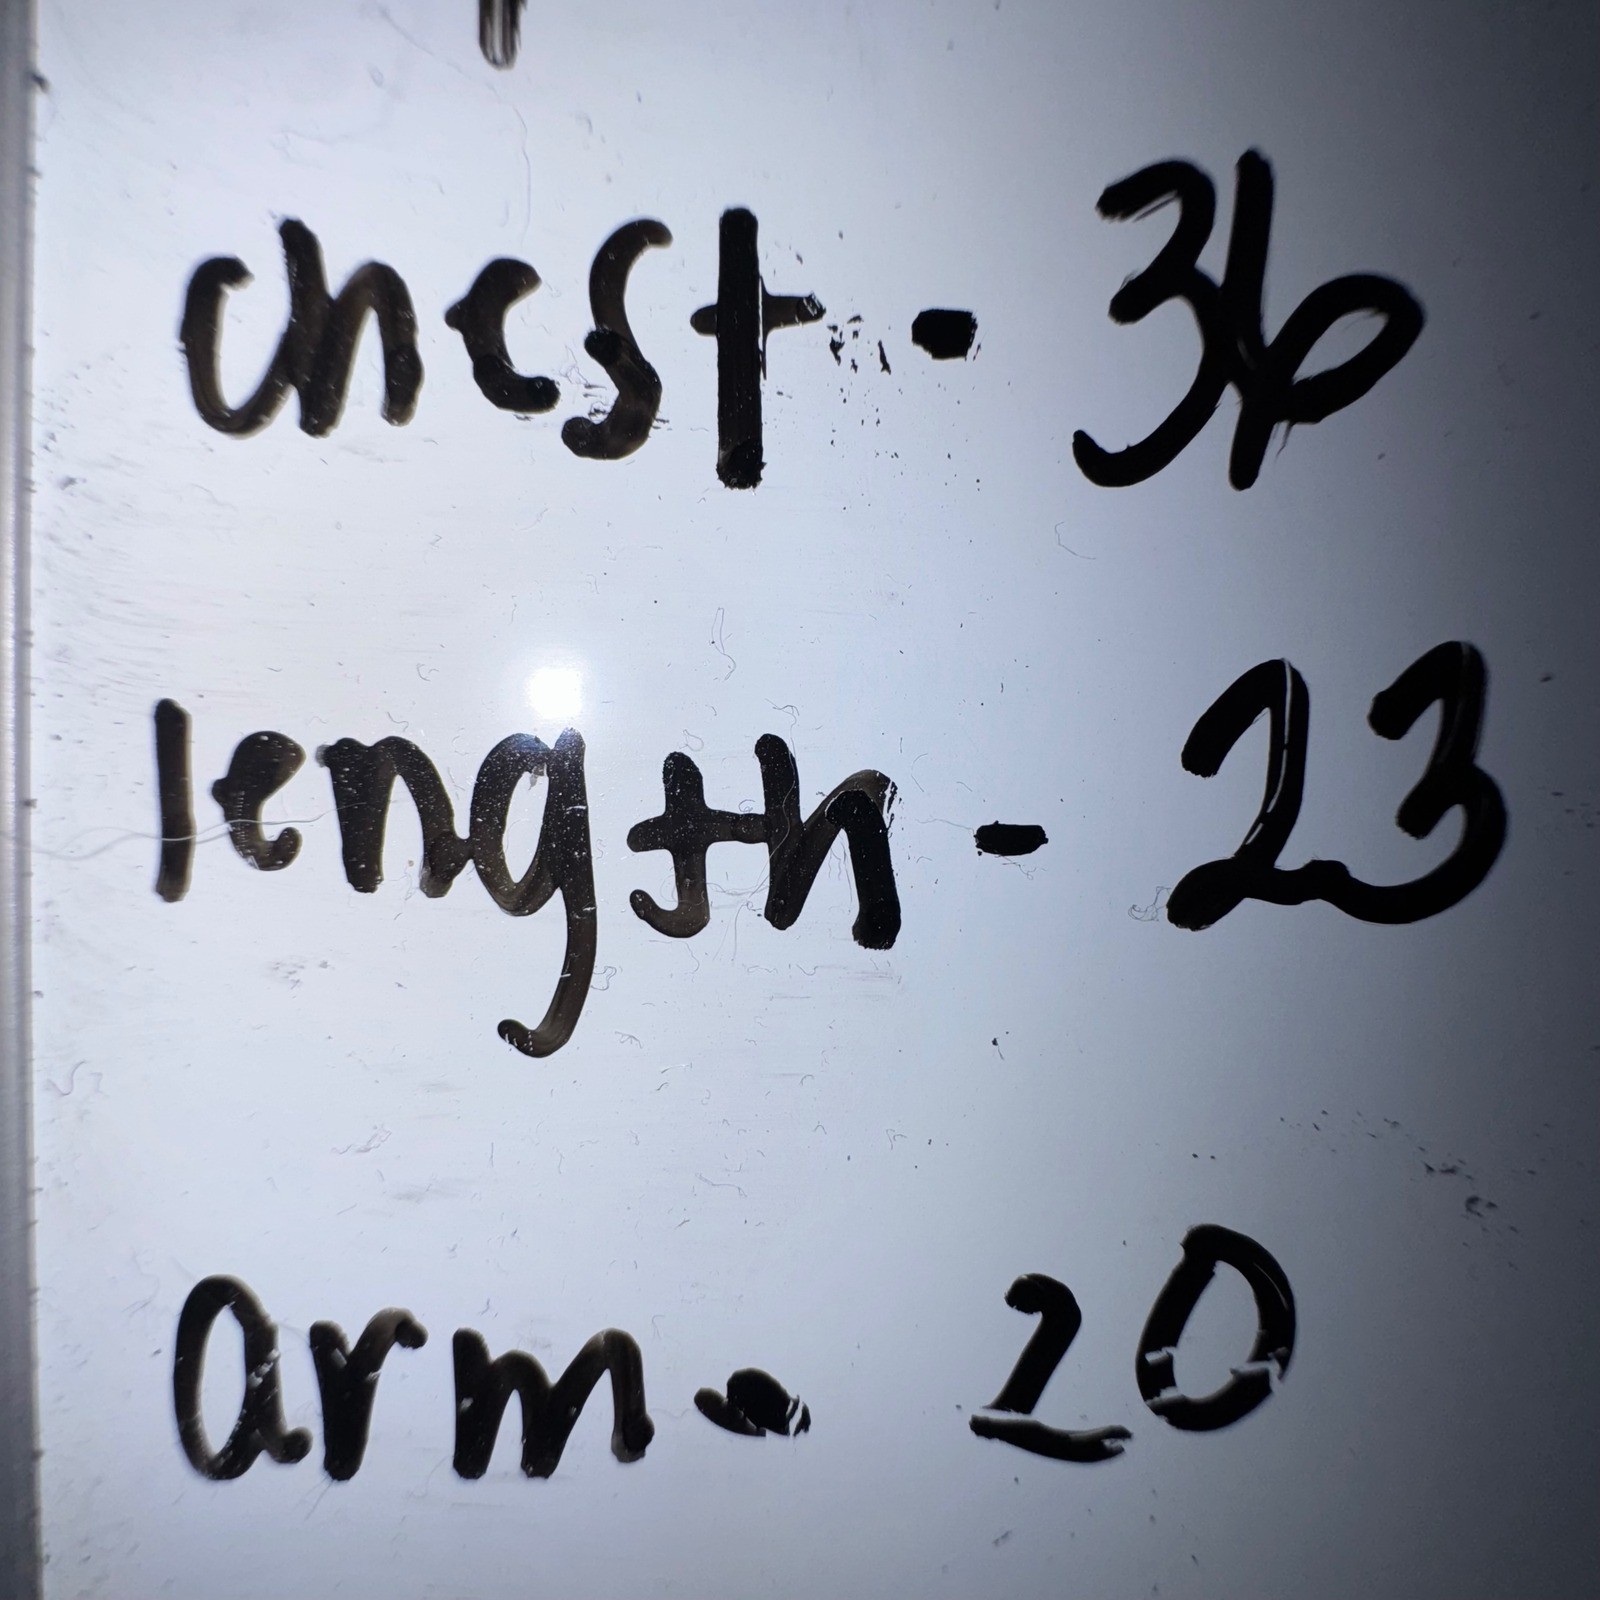 chest - 36
length - 23
arm - 20